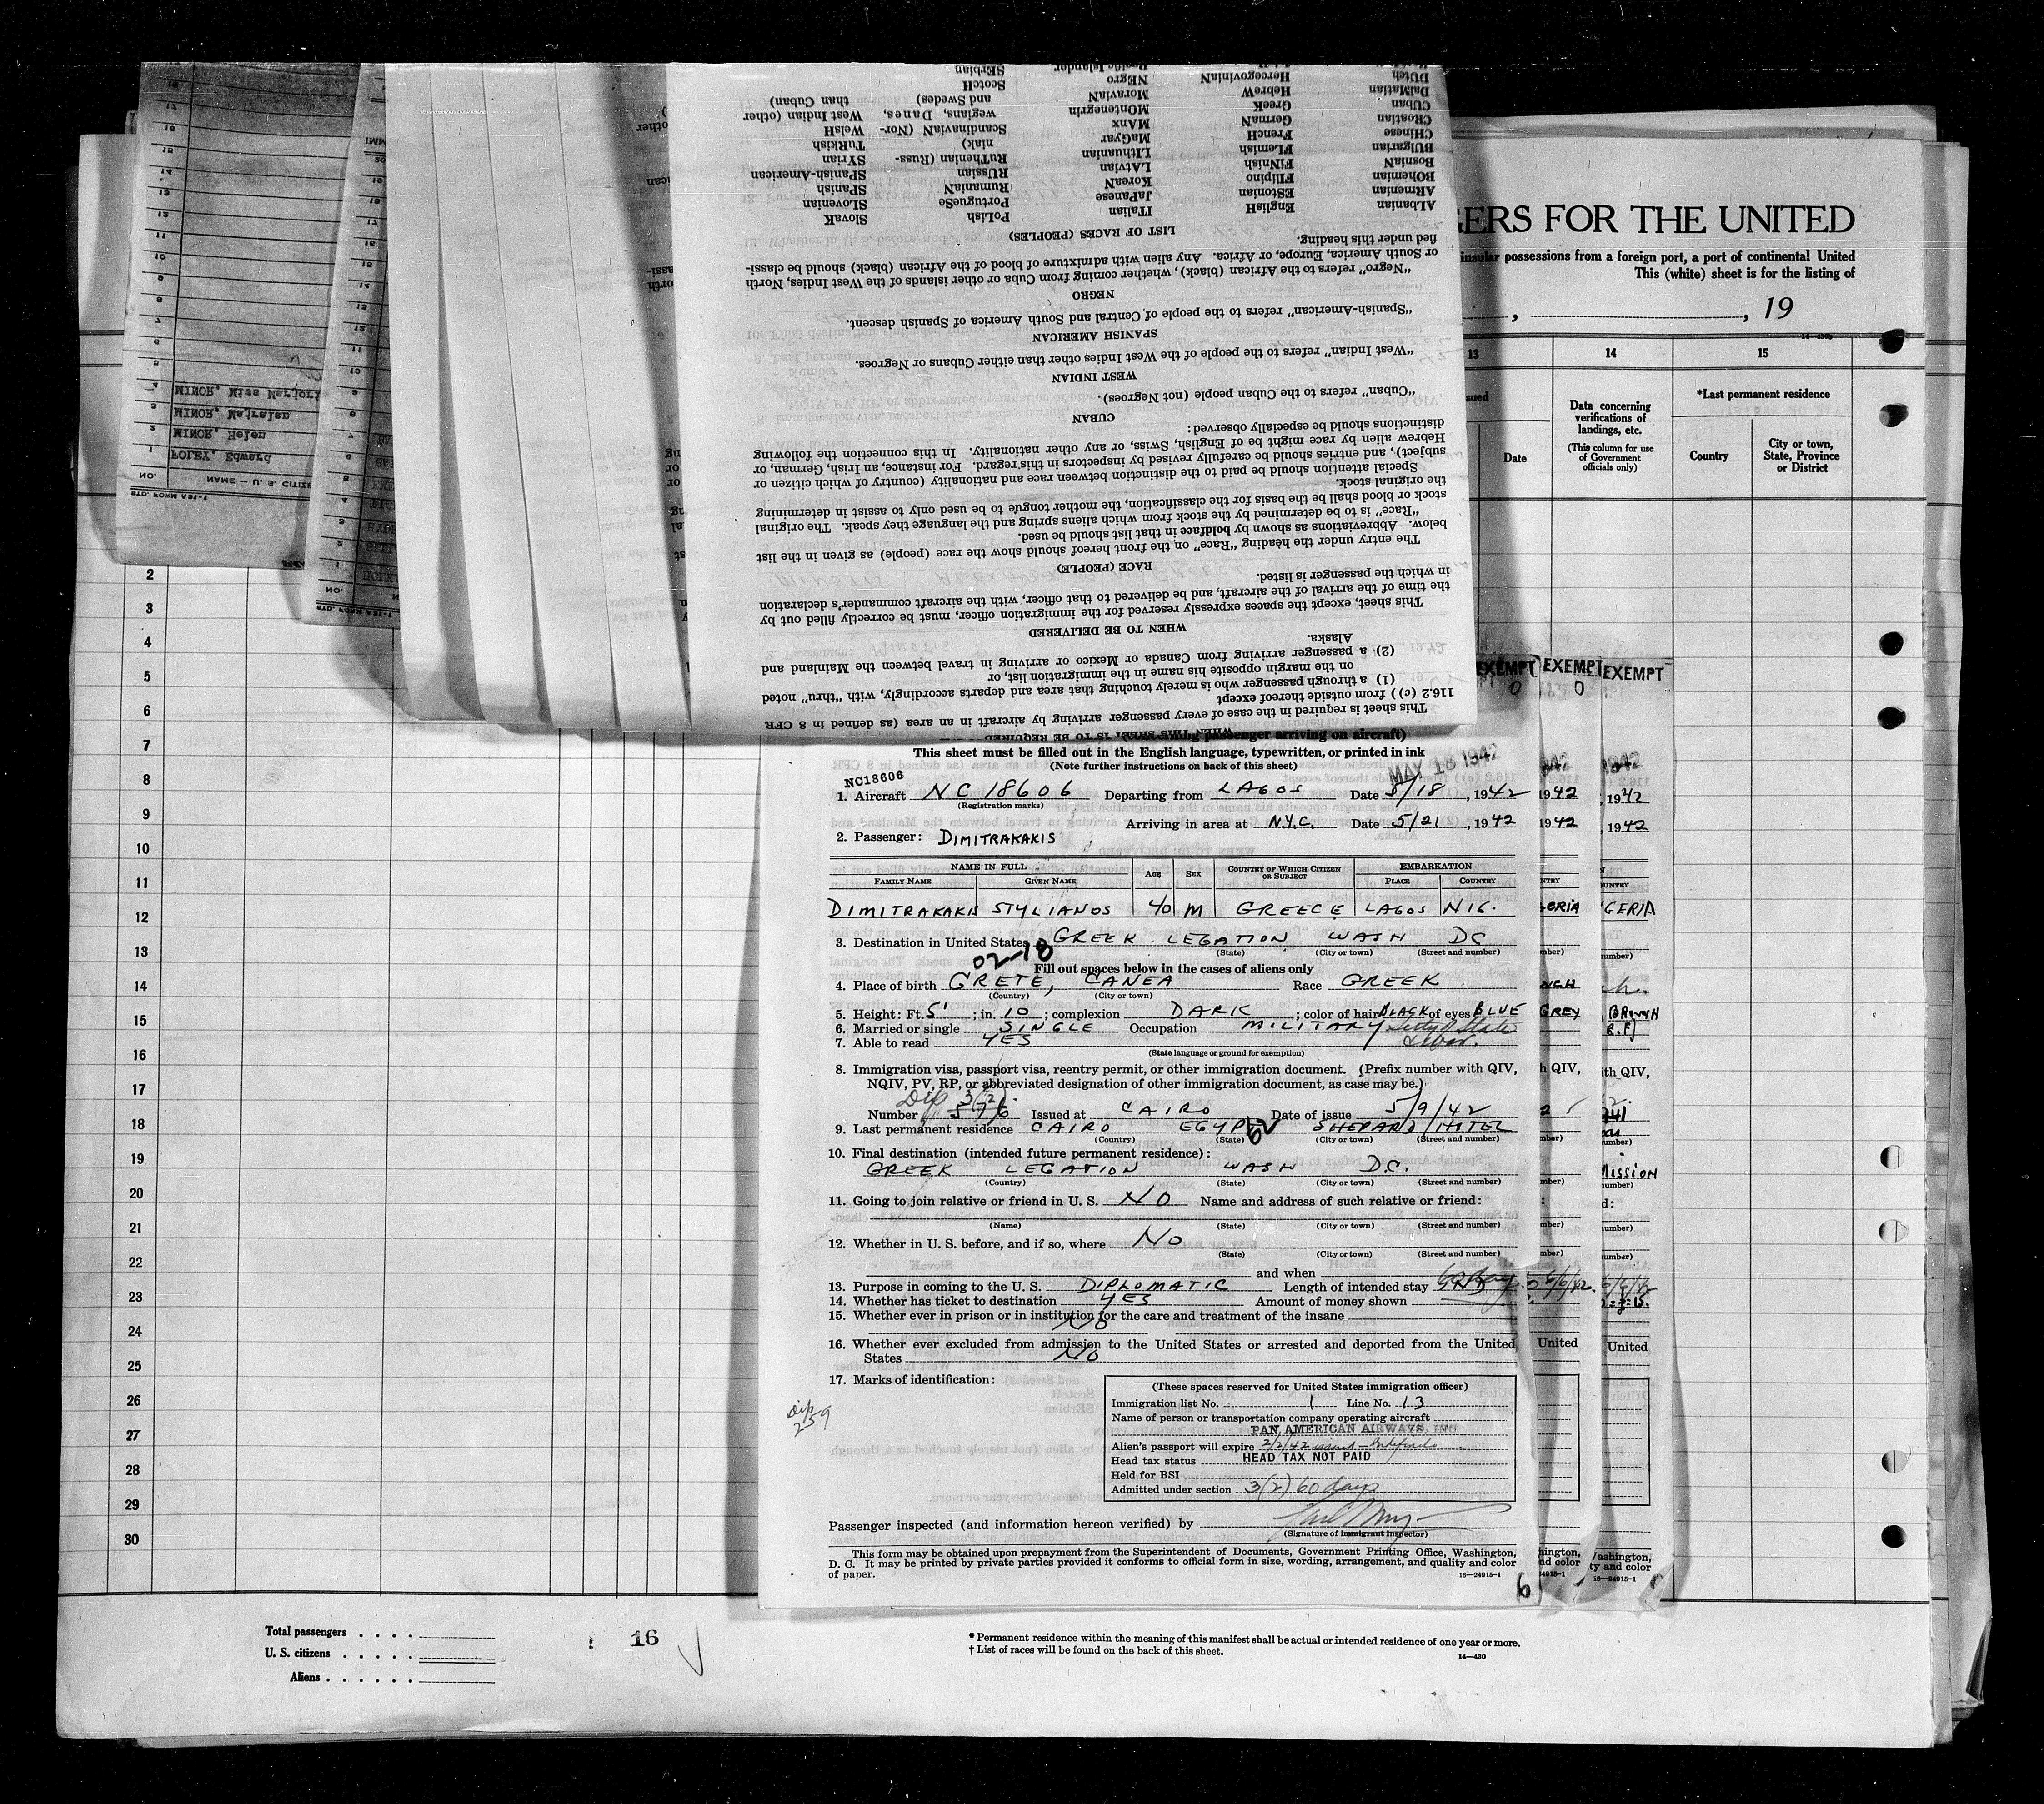 GERS FOR THE UNITED
insular possessions from a foreign port, a port of continental United
This (white) sheet is for the listing of
, , 19
13 14 15
sued
Data concerning
verifications of
landings, etc.
(This column for use
of Government
officials only)
*Last permanent residence
Date
Country
City or town,
State, Province
or District
SErbian
ScotcH
Scandinavian (Nor-
wegians, Danes,
and Swedes)
West Indian (other
than Cuban)
WelsH
TuRkish
SYrian
SPanisH-American
SPanish
SLOvenian
SlovaK
Pacific Islander
NEgro
MoraviaN
MOntenegrIn
MAnx
MaGyar
LIthuanian
LAtvian
KoreaN
JaPanese
ITalian
RuTHenian (Russ-
niak)
RUSsian
RumaniaN
PortugueSe
PoLish
HercegoviniaN
HebreW
GreeK
GermaN
FrencH
FLemish
FiNnish
FIlipino
EStonian
EnglisH
DUtch
DalMatian
CUban
CRoatian
CHinese
BUlgarian
BosniaN
BOhemian
ARmenian
ALbanian
LIST OF RACES (PEOPLES)
fied under this heading.
or South America, Europe, or Africa. Any alien with admixture of blood of the African (black) should be classi-
"Negro" refers to the African (black), whether coming from Cuba or other islands of the West Indies, North
NEGRO
"Spanish-American" refers to the people of Central and South America of Spanish descent.
SPANISH AMERICAN
"West Indian" refers to the people of the West Indies other than either Cubans or Negroes.
WEST INDIAN
"Cuban" refers to the Cuban people (not Negroes).
CUBAN
distinctions should be especially observed:
Hebrew alien by race might be of English, Swiss, or any other nationality. In this connection the following
subject), and entries should be carefully revised by inspectors in this regard. For instance, an Irish, German, or
Special attention should be paid to the distinction between race and nationality (country of which citizen or
the original stock.
stock or blood shall be the basis for the classification, the mother tongue to be used only to assist in determining
"Race" is to be determined by the stock from which aliens spring and the language they speak. The original
below. Abbreviations as shown by boldface in that list should be used.
The entry under the heading "Race" on the front hereof should show the race (people) as given in the list
RACE (PEOPLE)
in which the passenger is listed.
the time of the arrival of the aircraft, and be delivered to that officer, with the aircraft commander's declaration
This sheet, except the spaces expressly reserved for the immigration officer, must be correctly filled out by
WHEN TO BE DELIVERED
Alaska.
(2) a passenger arriving from Canada or Mexico or arriving in travel between the Mainland and
on the margin opposite his name in the immigration list, or
(1) a through passenger who is merely touching that area and departs accordingly, with "thru" noted
116.2 (c)) from outside thereof except
This sheet is required in the case of every passenger arriving by aircraft in an area (as defined in 8 CFR
MINOR, Miss Marjory
MINOR, Majralen
MINOR, Helen
FOLEY, Edward
NO. NAME — U. S. CITIZE
STD. FORM A31-1
EXEMPT EXEMPT EXEMPT
0 0
passenger arriving on aircraft)
This sheet must be filled out in the English language, typewritten, or printed in ink
(Note further instructions on back of this sheet)
MAY 18 1942
NC18606
1. Aircraft NC 18606 Departing from LAGOS Date 5/18, 1942
(Registration marks)
Arriving in area at N.Y.C. Date 5/21, 1942
2. Passenger: DIMITRAKAKIS
NAME IN FULL
FAMILY NAME GIVEN NAME AGE SEX COUNTRY OF WHICH CITIZEN OR SUBJECT EMBARKATION PLACE COUNTRY
DIMITRAKAKIS STYLIANOS 40 M GREECE LAGOS NIG.
3. Destination in United States GREEK LEGATION WASH DC
(State) (City or town) (Street and number)
02-18
Fill out spaces below in the cases of aliens only
4. Place of birth GRETE, CANEA Race GREEK
(Country) (City or town)
5. Height: Ft. 5' ; in. 10 ; complexion DARK ; color of hair BLACK of eyes BLUE
6. Married or single SINGLE Occupation MILITARY
7. Able to read YES
(State language or ground for exemption)
8. Immigration visa, passport visa, reentry permit, or other immigration document. (Prefix number with QIV,
NQIV, PV, RP, or abbreviated designation of other immigration document, as case may be.)
Dip 3(2)
Number 576 Issued at CAIRO Date of issue 5/9/42
9. Last permanent residence CAIRO EGYPT SHEPARD HOTEL
(Country) (State) (City or town) (Street and number)
10. Final destination (intended future permanent residence):
GREEK LEGATION WASH D.C.
(Country) (State) (City or town) (Street and number)
11. Going to join relative or friend in U. S. NO Name and address of such relative or friend:
(Name) (State) (City or town) (Street and number)
12. Whether in U. S. before, and if so, where NO
(State) (City or town) (Street and number)
and when
13. Purpose in coming to the U. S. DIPLOMATIC Length of intended stay
14. Whether has ticket to destination YES Amount of money shown
15. Whether ever in prison or in institution for the care and treatment of the insane
NO
16. Whether ever excluded from admission to the United States or arrested and deported from the United
States NO
17. Marks of identification:
Dip
259
(These spaces reserved for United States immigration officer)
Immigration list No. 1 Line No. 13
Name of person or transportation company operating aircraft
PAN AMERICAN AIRWAYS, INC
Alien's passport will expire 2/2/42 issued — Indefinite
Head tax status HEAD TAX NOT PAID
Held for BSI
Admitted under section 3(2) 60 days
Passenger inspected (and information hereon verified) by
(Signature of immigrant inspector)
This form may be obtained upon prepayment from the Superintendent of Documents, Government Printing Office, Washington,
D. C. It may be printed by private parties provided it conforms to official form in size, wording, arrangement, and quality and color
of paper. 16—24915-1
6
2
3
4
5
6
7
8
9
10
11
12
13
14
15
16
17
18
19
20
21
22
23
24
25
26
27
28
29
30
Total passengers . . . .
U. S. citizens . . . . .
Aliens . . . . . .
16
* Permanent residence within the meaning of this manifest shall be actual or intended residence of one year or more.
† List of races will be found on the back of this sheet.
14—430